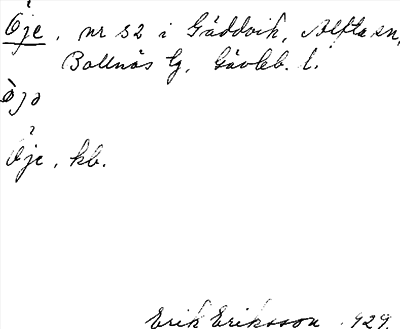 Öje, nr 32 i Gäddvik, Alfta sn,
Bollnäs tg, Gävleb. l.
Öjə
Öje, kb.
Erik Eriksson 1929.